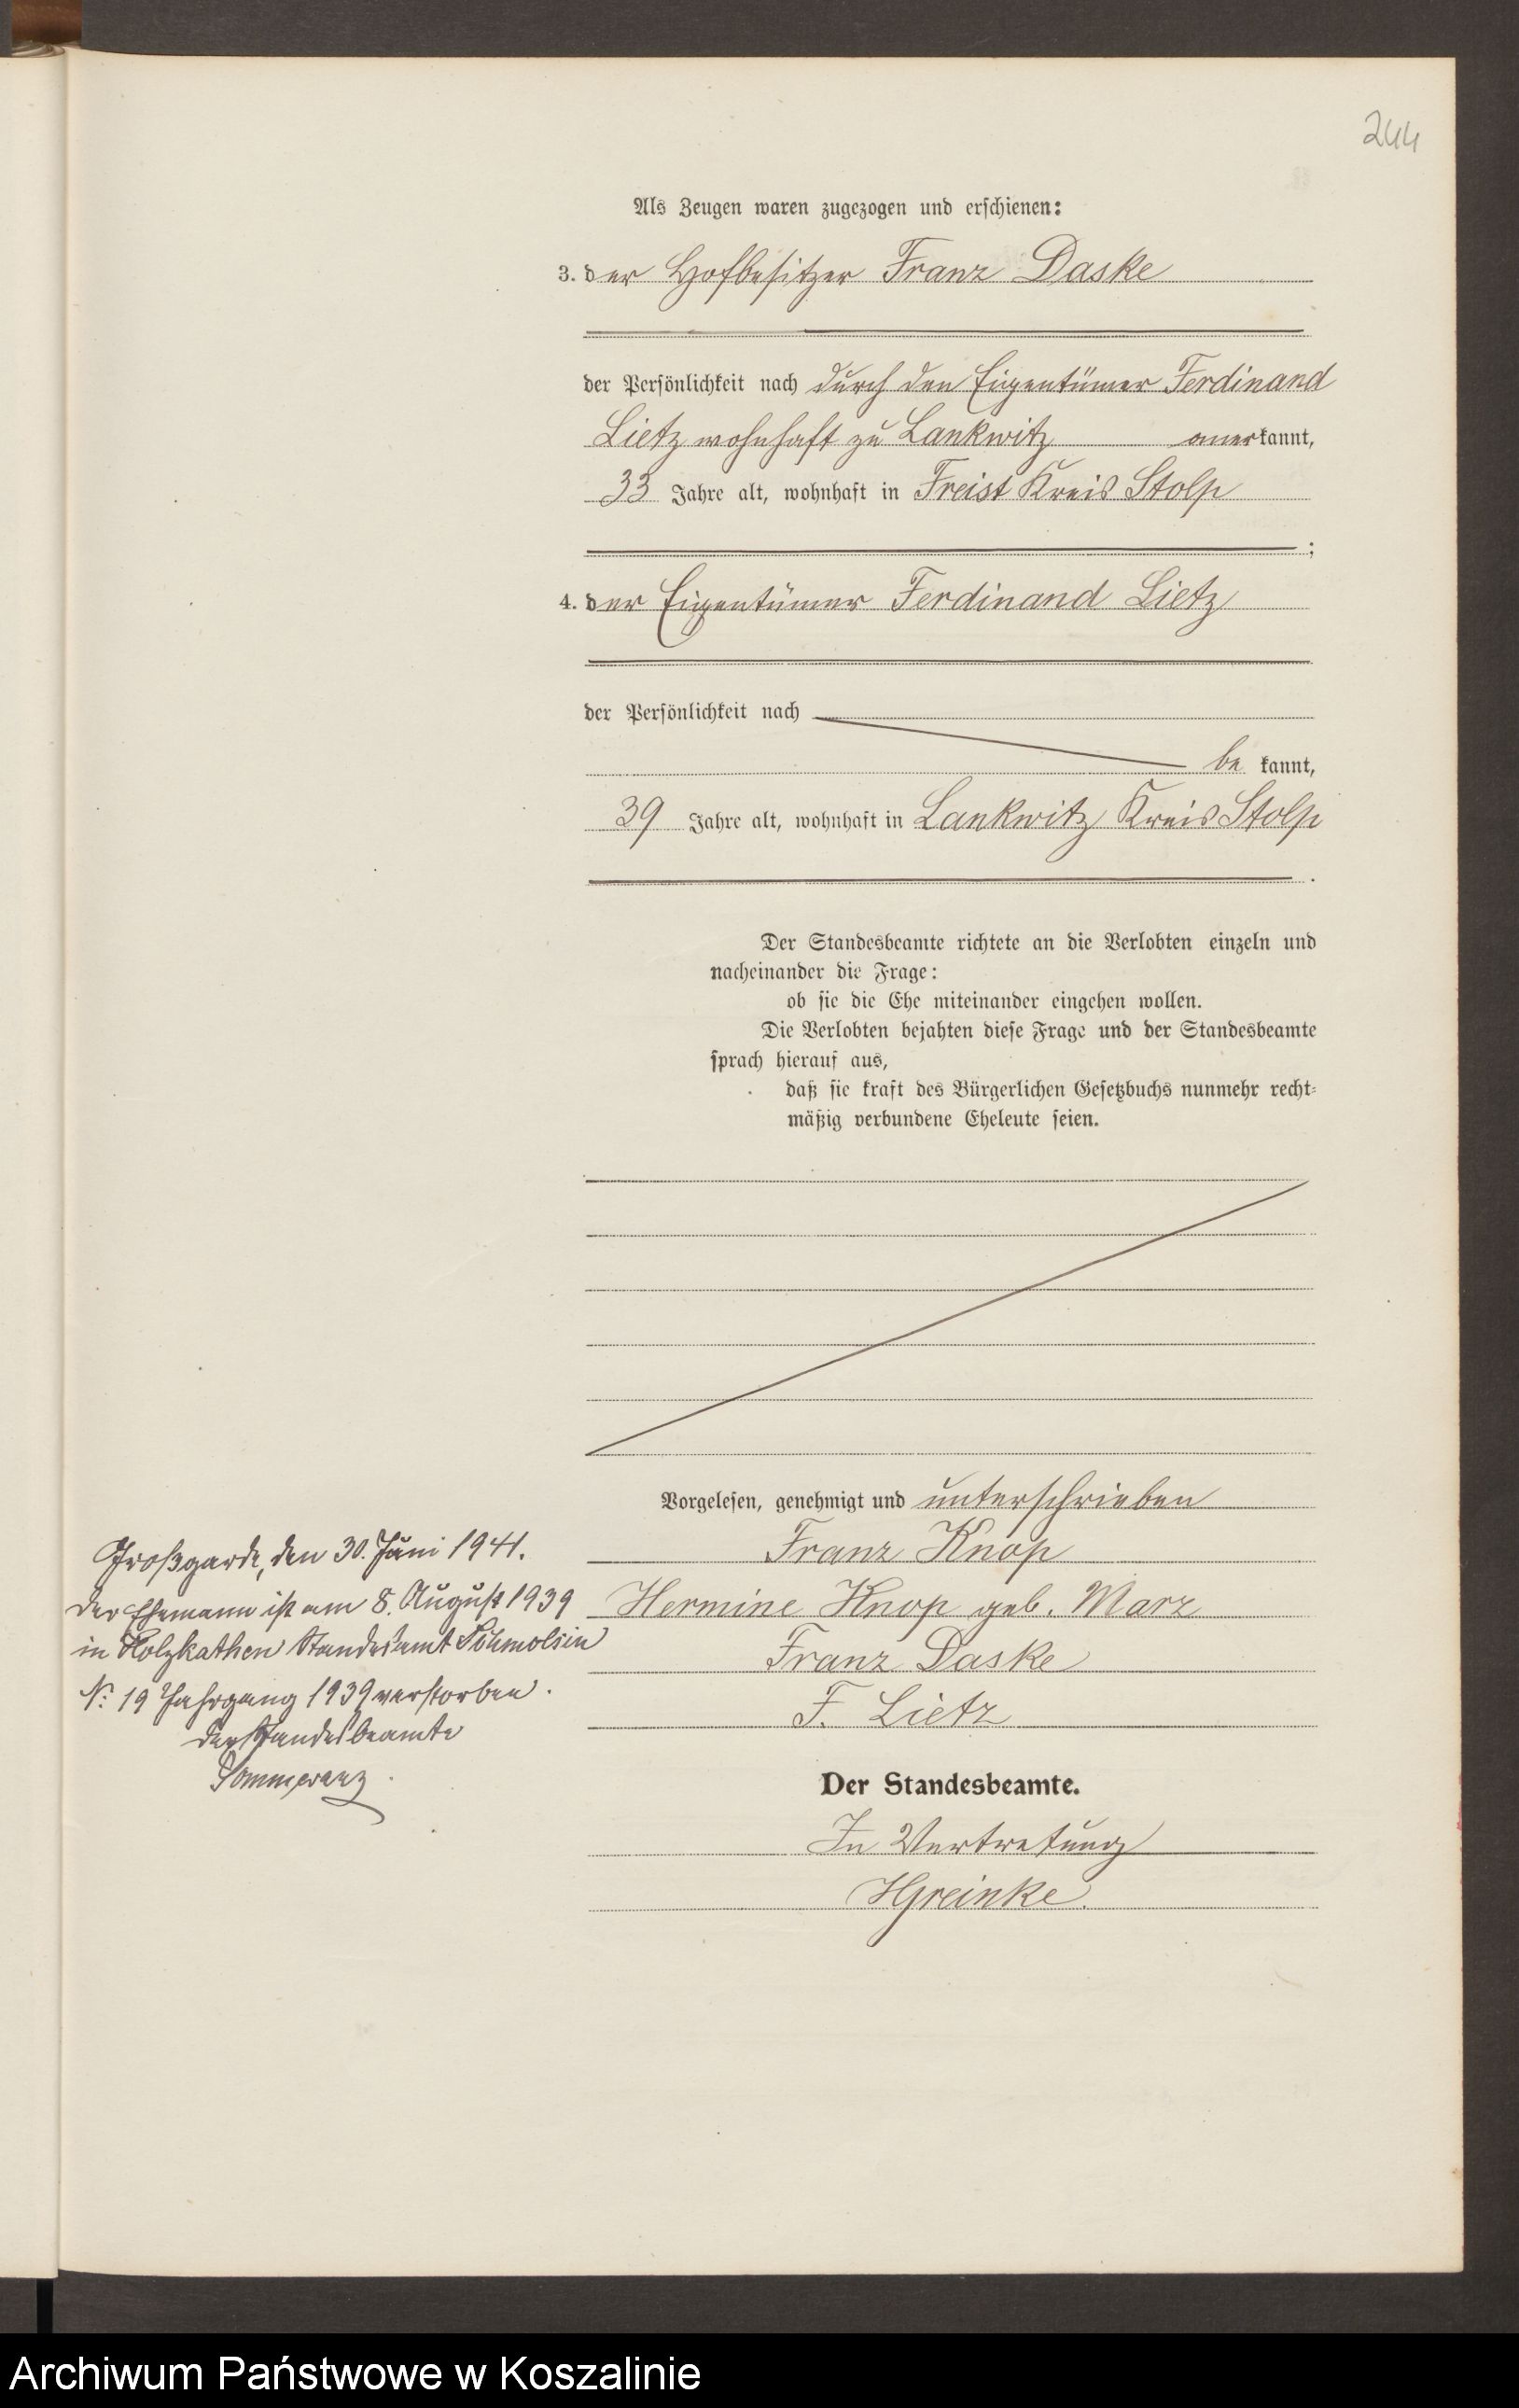 244
Als Zeugen waren zugezogen und erschienen:
3. der Hofbesitzer Franz Daske
der Persönlichkeit nach durch den Eigentümer Ferdinand
Lietz wohnhaft zu Lankwitz anerkannt,
33 Jahre alt, wohnhaft in Freist Kreis Stolp
;
4. der Eigentümer Ferdinand Lietz
der Persönlichkeit nach
be kannt,
39 Jahre alt, wohnhaft in Lankwitz Kreis Stolp
.
Der Standesbeamte richtete an die Verlobten einzeln und
nacheinander die Frage:
ob sie die Ehe miteinander eingehen wollen.
Die Verlobten bejahten diese Frage und der Standesbeamte
sprach hierauf aus,
daß sie kraft des Bürgerlichen Gesetzbuchs nunmehr recht-
mäßig verbundene Eheleute seien.
Vorgelesen, genehmigt und unterschrieben
Franz Knop
Hermine Knop geb. Marz
Franz Daske
F. Lietz
Der Standesbeamte.
In Vertretung
HGreinke.
Großgarde, den 30. Juni 1941.
Der Ehemann ist am 8. August 1939
in Holzkathen Standesamt Schmolsin
Nr. 19 Jahrgang 1939 verstorben.
Der Standesbeamte
Pommerenz
Archiwum Państwowe w Koszalinie